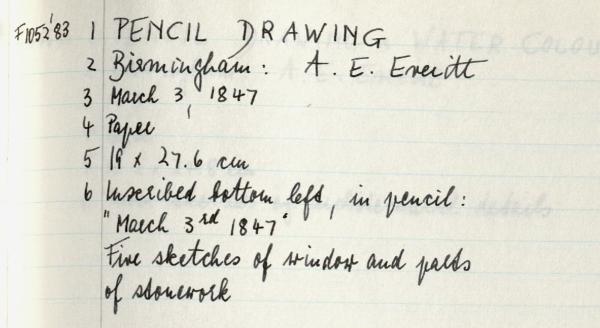 F1052'83 1 PENCIL DRAWING
2 Birmingham: A. E. Everitt
3 March 3, 1847
4 Paper
5 19 x 27.6 cm
6 Inscribed bottom left, in pencil:
"March 3rd 1847"
Five sketches of window and parts
of stonework